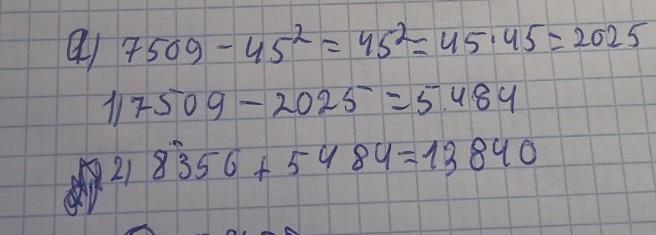 a) 7509 - 45² = 45² = 45·45 = 2025
1) 7509 - 2025 = 5484
2) 8356 + 5484 = 13840